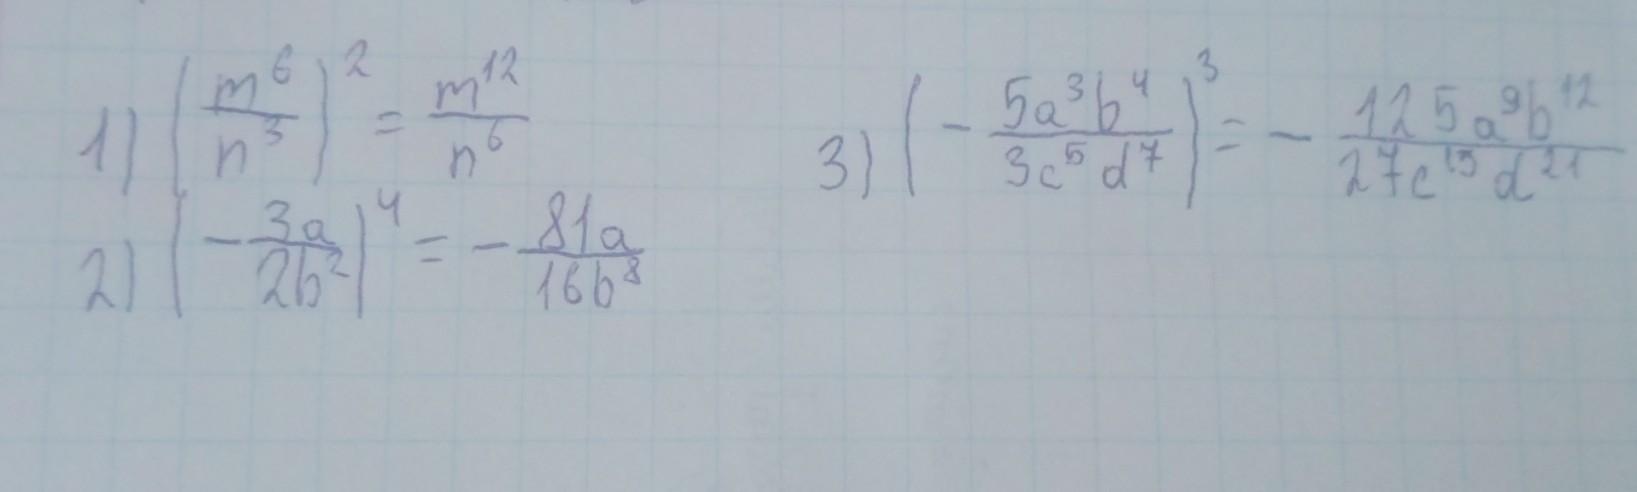 1) (m⁶/n³)² = m¹²/n⁶
2) (-3a/2b²)⁴ = -81a/16b⁸
3) (-5a³b⁴/3c⁵d⁷)³ = -125a⁹b¹²/27c¹⁵d²¹